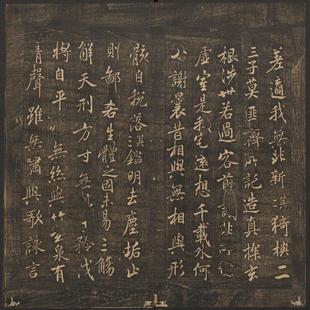 差適我無非新猗與二
三子莫匪齊所託造真探玄
根涉世若過客前識非所
虛室是我宅遠想千載外何
必謝曩昔相與無相與形
骸自脫落鑑明去塵垢止
則鄙吝生體之固未易三觴
解天刑方寸無矜伐
將自平無絲與竹玄泉有
清聲雖無嘯與歌詠言